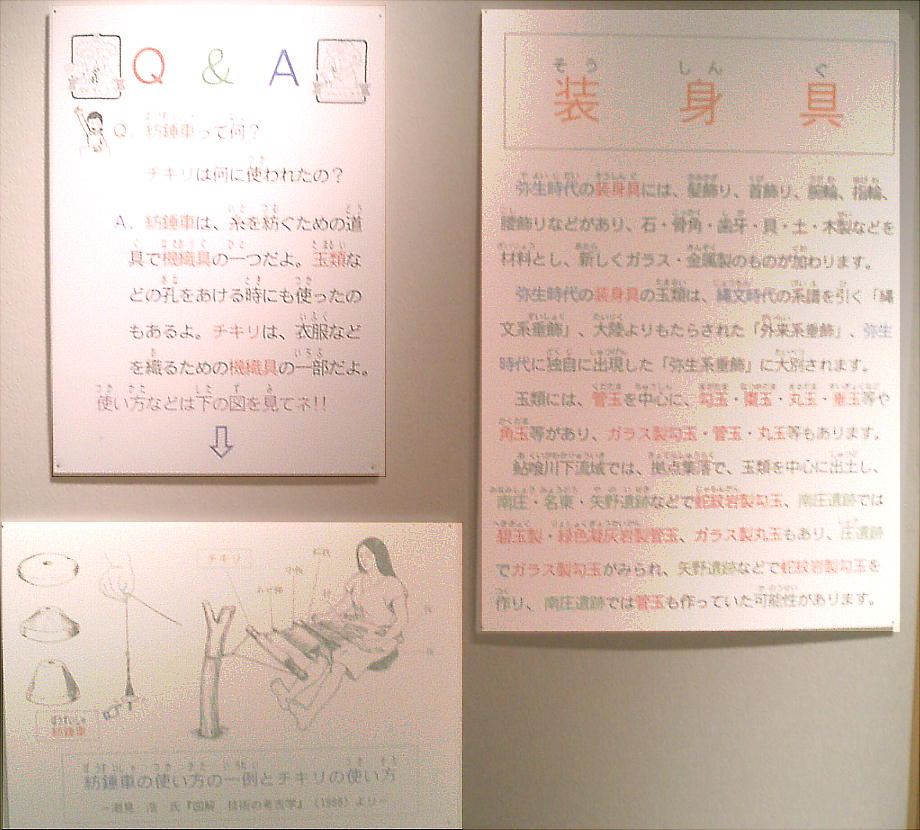 Q & A
Q. 紡錘車って何?
チキリは何に使われたの?
A. 紡錘車は、糸を紡ぐための道
具で機織具の一つだよ。玉類な
どの孔をあける時にも使ったの
もあるよ。チキリは、衣服など
を織るための機織具の一部だよ。
使い方などは下の図を見てネ!!
チキリ
ぼうすいしゃ
紡錘車
紡錘車の使い方の一例とチキリの使い方
－潮見 浩 氏『図解 技術の考古学』(1988)より－
そう しん ぐ
装身具
弥生時代の装身具には、髪飾り、首飾り、腕輪、指輪、
腰飾りなどがあり、石・骨角・歯牙・貝・土・木製などを
材料とし、新しくガラス・金属製のものが加わります。
弥生時代の装身具の玉類は、縄文時代の系譜を引く「縄
文系垂飾」、大陸よりもたらされた「外来系垂飾」、弥生
時代に独自に出現した「弥生系垂飾」に大別されます。
玉類には、管玉を中心に、勾玉・棗玉・丸玉・垂玉等や
角玉等があり、ガラス製勾玉・管玉・丸玉等もあります。
鮎喰川下流域では、拠点集落で、玉類を中心に出土し、
南庄・名東・矢野遺跡などで蛇紋岩製勾玉、南庄遺跡では
碧玉製・緑色凝灰岩製管玉、ガラス製丸玉もあり、庄遺跡
でガラス製勾玉がみられ、矢野遺跡などで蛇紋岩製勾玉を
作り、南庄遺跡では管玉も作っていた可能性があります。